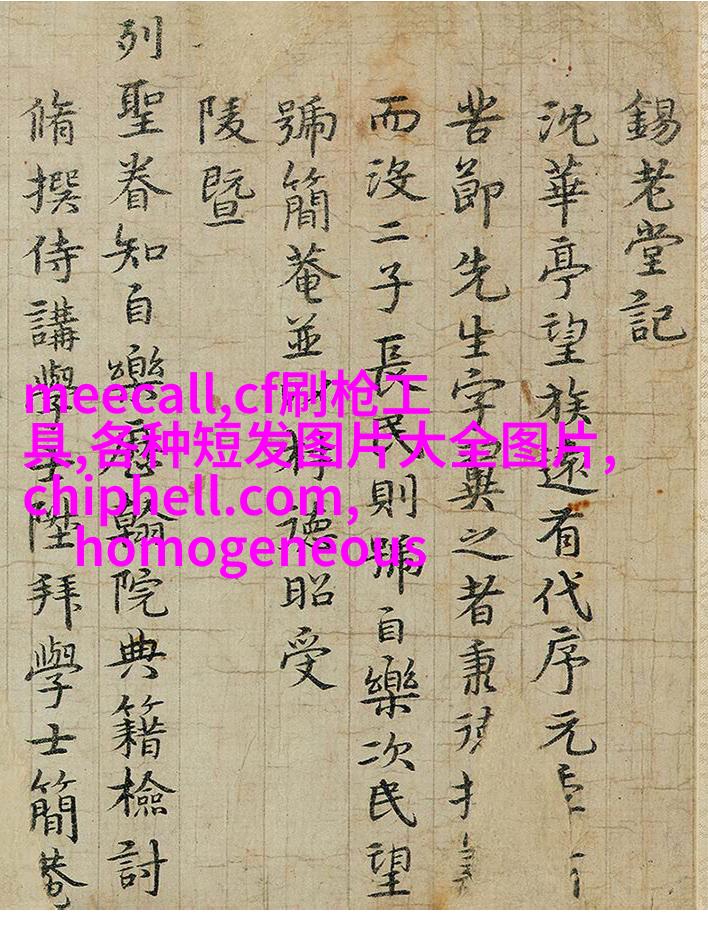 錫老堂記
沈華亭望族遠有代序元
苦節先生字巽之者秉
而沒二子長民則號自樂次民望
號簡菴並德昭受
陵暨
列聖眷知自樂翰院典籍檢討
脩撰侍講學士陞拜學士簡菴
meecall,cf刷枪工
具,各种短发图片大全图片,
chiphell.com,
homogeneous